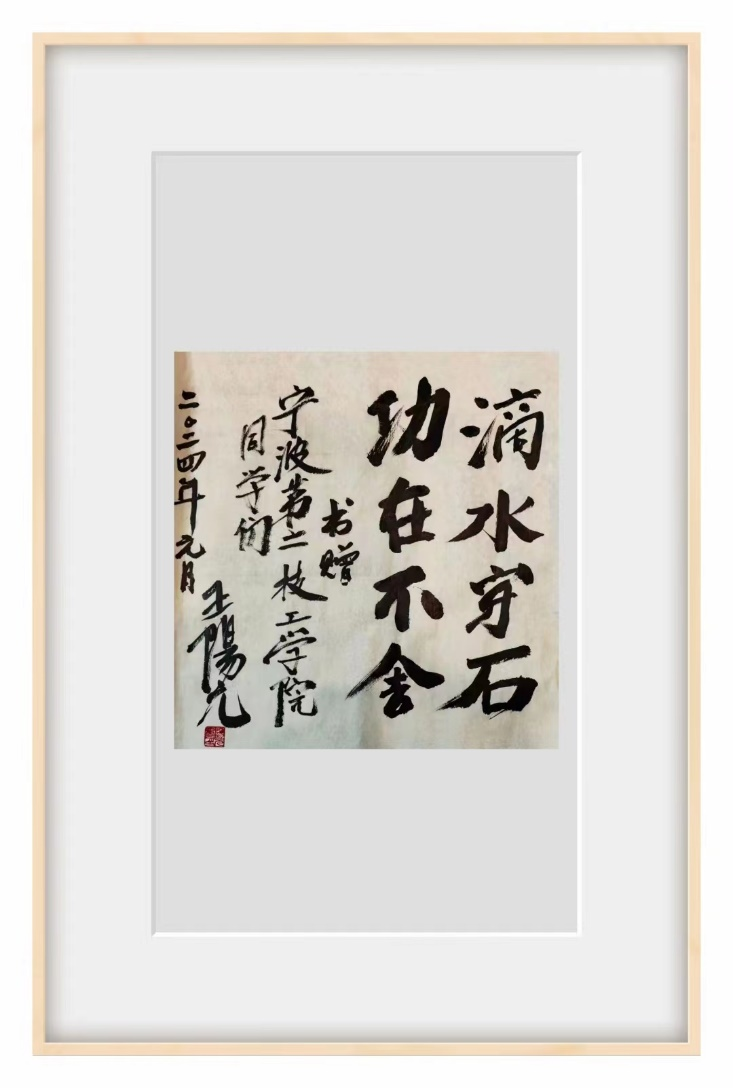 滴水穿石
功在不舍
书赠
宁波第二技工学院
同学们
二〇二四年元月
王陽光